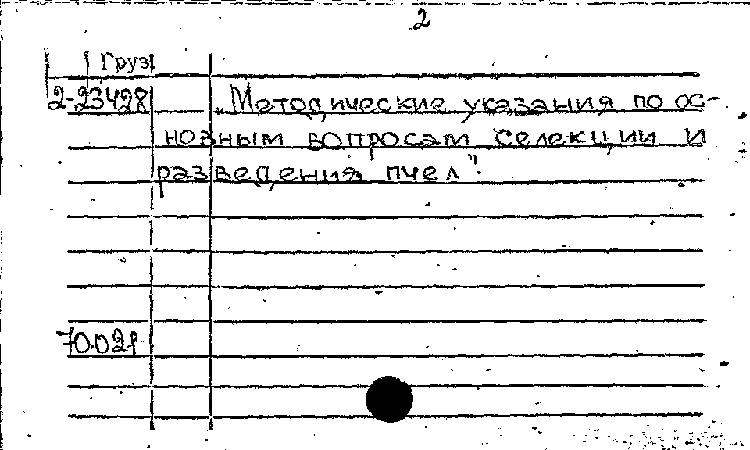 2
Груз
2-23428
„Методические указания по ос-
новным вопросам селекции и
разведения пчел".
70.021